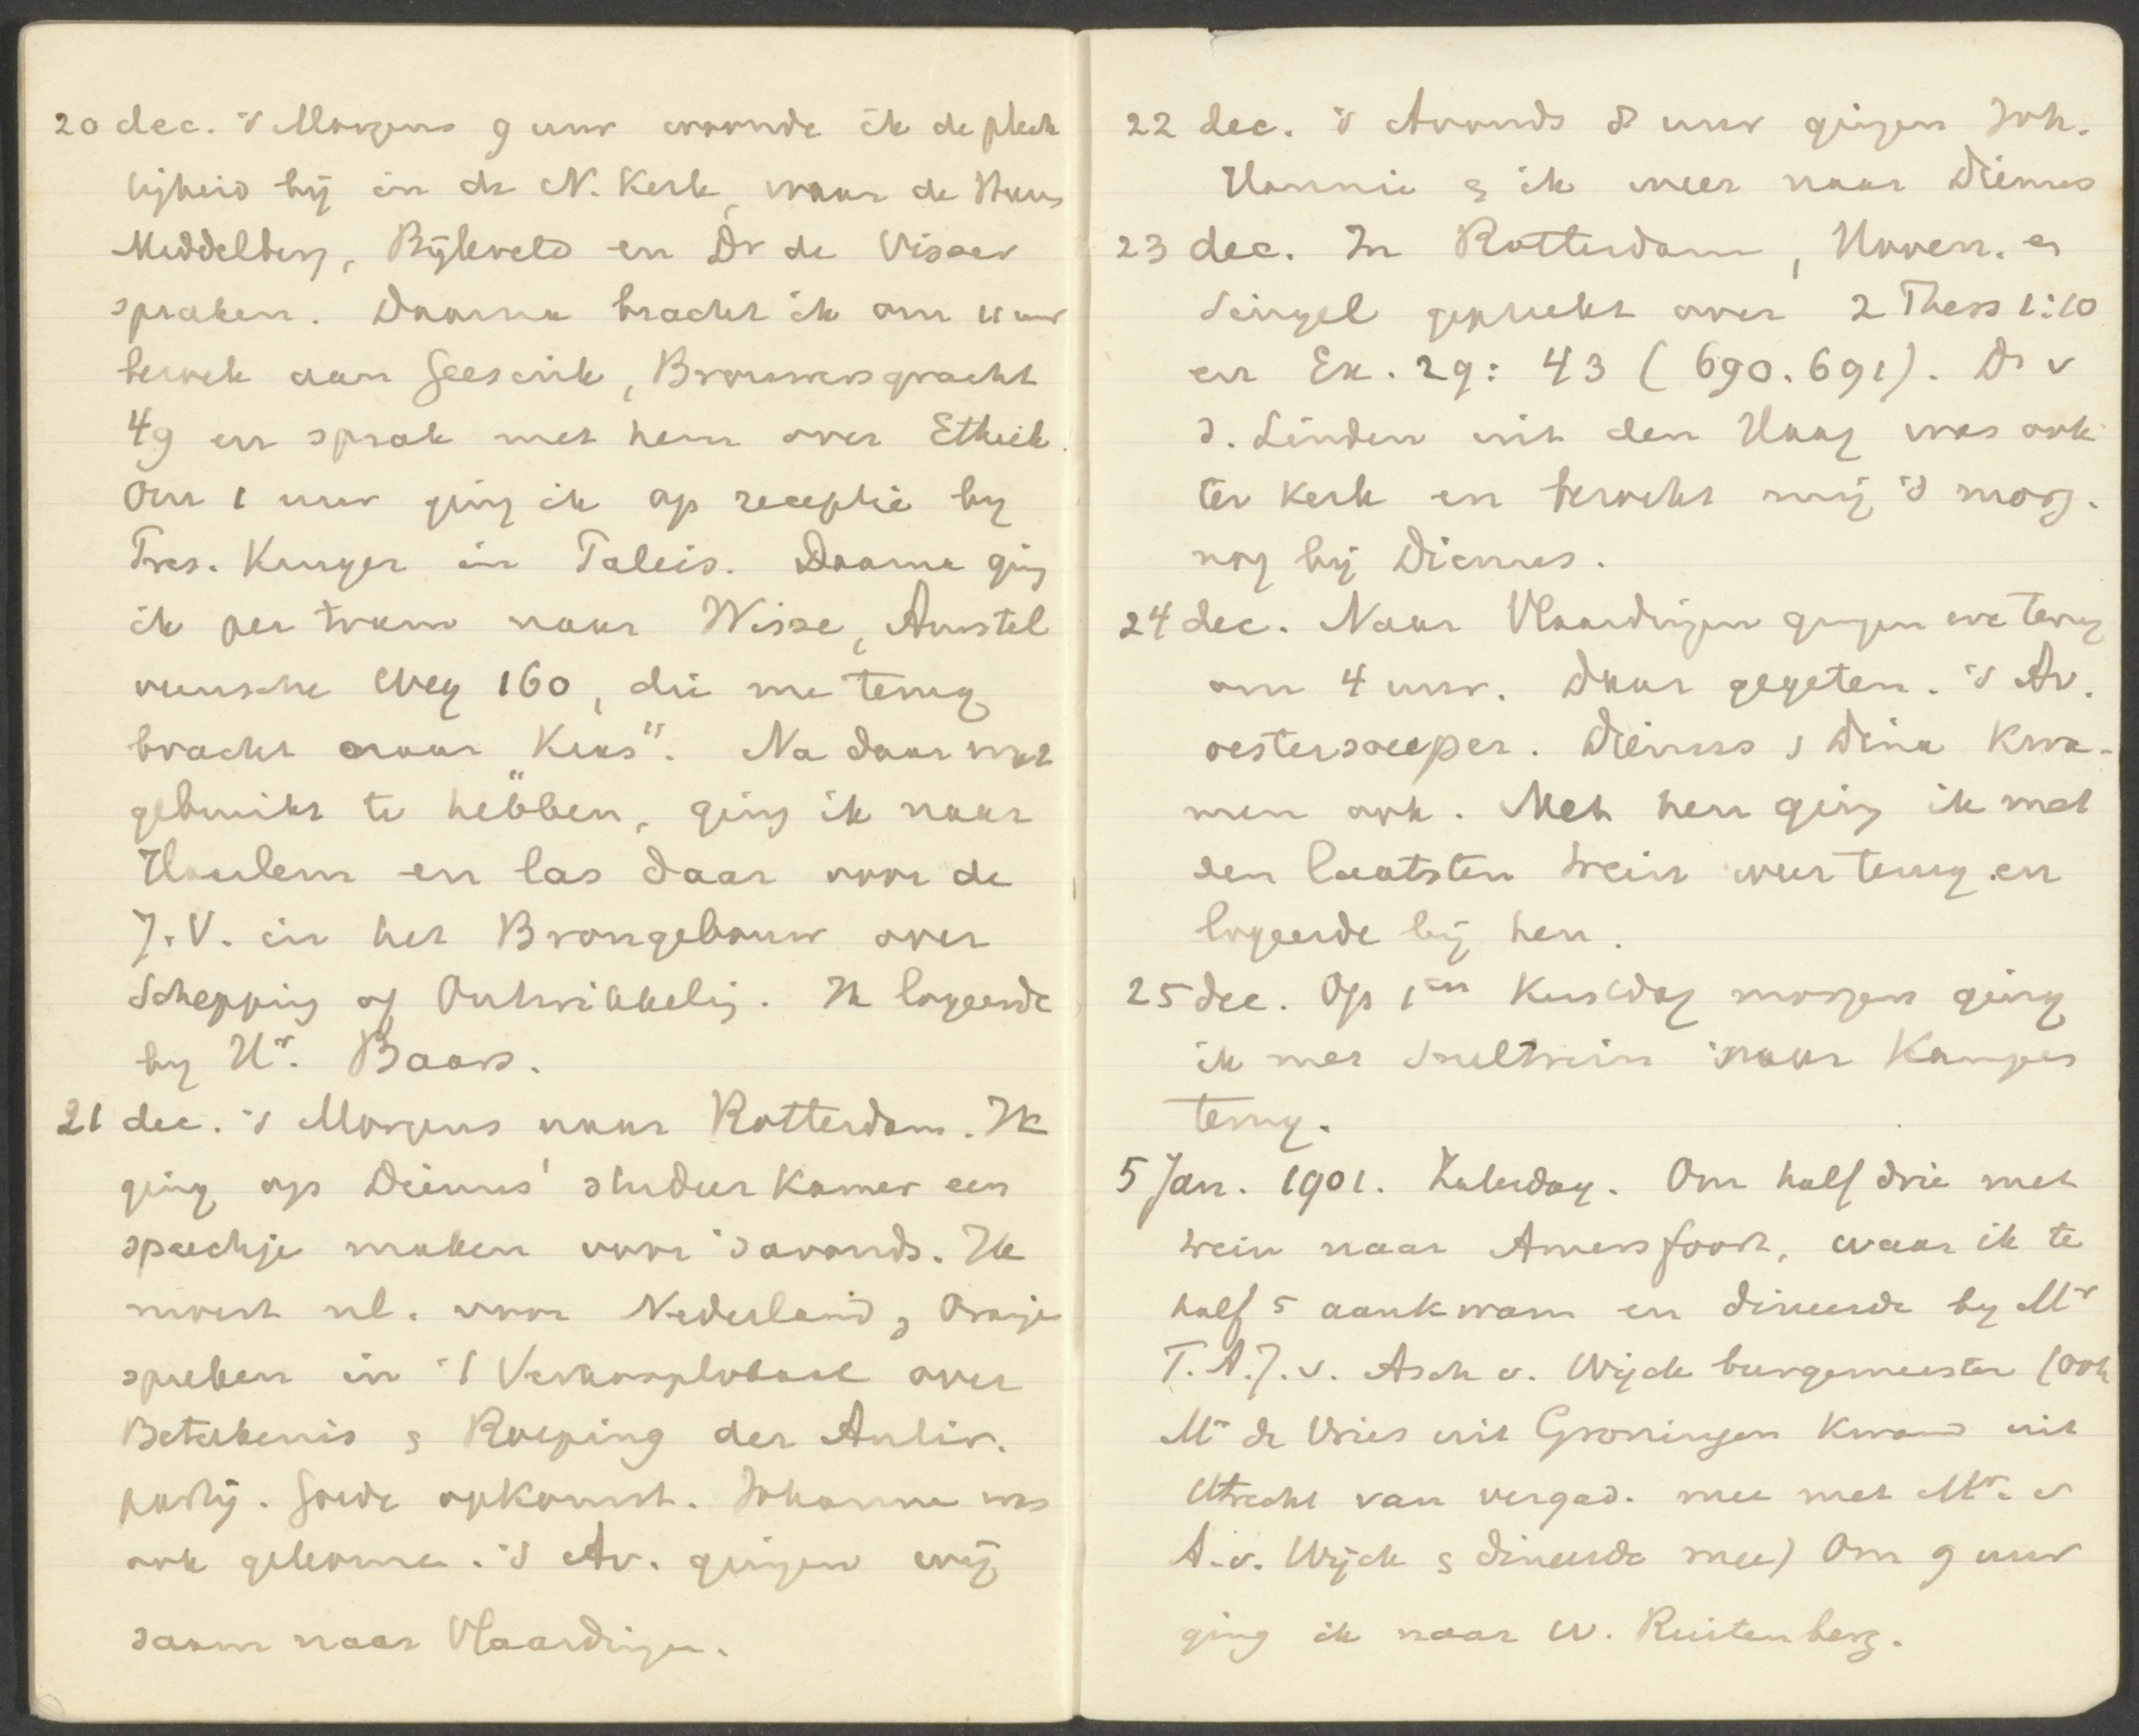 20 dec. 's Morgens 9 uur woonde ik de plech
tigheid bij in de N. Kerk, waar de Heeren
Middelberg, Bijleveld en Dr de Visser
spraken. Daarna bracht ik om 11 uur
bezoek aan Geesink, Brouwersgracht
49 en sprak met hem over Ethiek.
Om 1 uur ging ik op receptie by
Pres. Kruger in Paleis. Daarna ging
ik per tram naar Wisse, Amstel
veensche weg 160, die me terug
bracht naar „Kras". Na daar wat
gebruikt te hebben, ging ik naar
Haarlem en las daar voor de
J.V. in het Brongebouw over
Schepping of Ontwikkeling. Ik logeerde
by Hr. Baars.
21 dec. 's Morgens naar Rotterdam. Ik
ging op Diemus' studeerkamer een
speechje maken voor 's avonds. Ik
moest nl. voor Nederland & Oranje
spreken in 't Verkooplokaal over
Beteekenis & Roeping der Antir.
partij. Goede opkomst. Johanna was
ook gekomen. 's Av. gingen wij
saam naar Vlaardingen.
22 dec. 's Avonds 8 uur gingen Joh.
Hannie & ik weer naar Diemus
23 dec. In Rotterdam, Haven. en
Singel gepreekt over 2 Thess 1:10
en Ex. 29: 43 (690.691). Ds v
d. Linden uit den Haag was ook
ter kerk en bezocht mij 's morg.
nog bij Diemus.
24 dec. Naar Vlaardingen gingen we terug
om 4 uur. Daar gegeten. 's Av.
oestersouper. Diemus & Dina kwa-
men ook. Met hen ging ik met
den laatsten trein weer terug en
logeerde bij hen.
25 dec. Op 1en Kerstdag morgen ging
ik met sneltrein naar Kampen
terug.
5 Jan. 1901. Zaterdag. Om half drie met
trein naar Amersfoort, waar ik te
half 5 aankwam en dineerde by Mr
T.A.J. v. Asch v. Wijck burgemeester (ook
Mr de Vries uit Groningen kwam uit
Utrecht van vergad. mee met Mr. v
A.v. Wijck & dineerde mee) Om 9 uur
ging ik naar W. Ruitenberg.